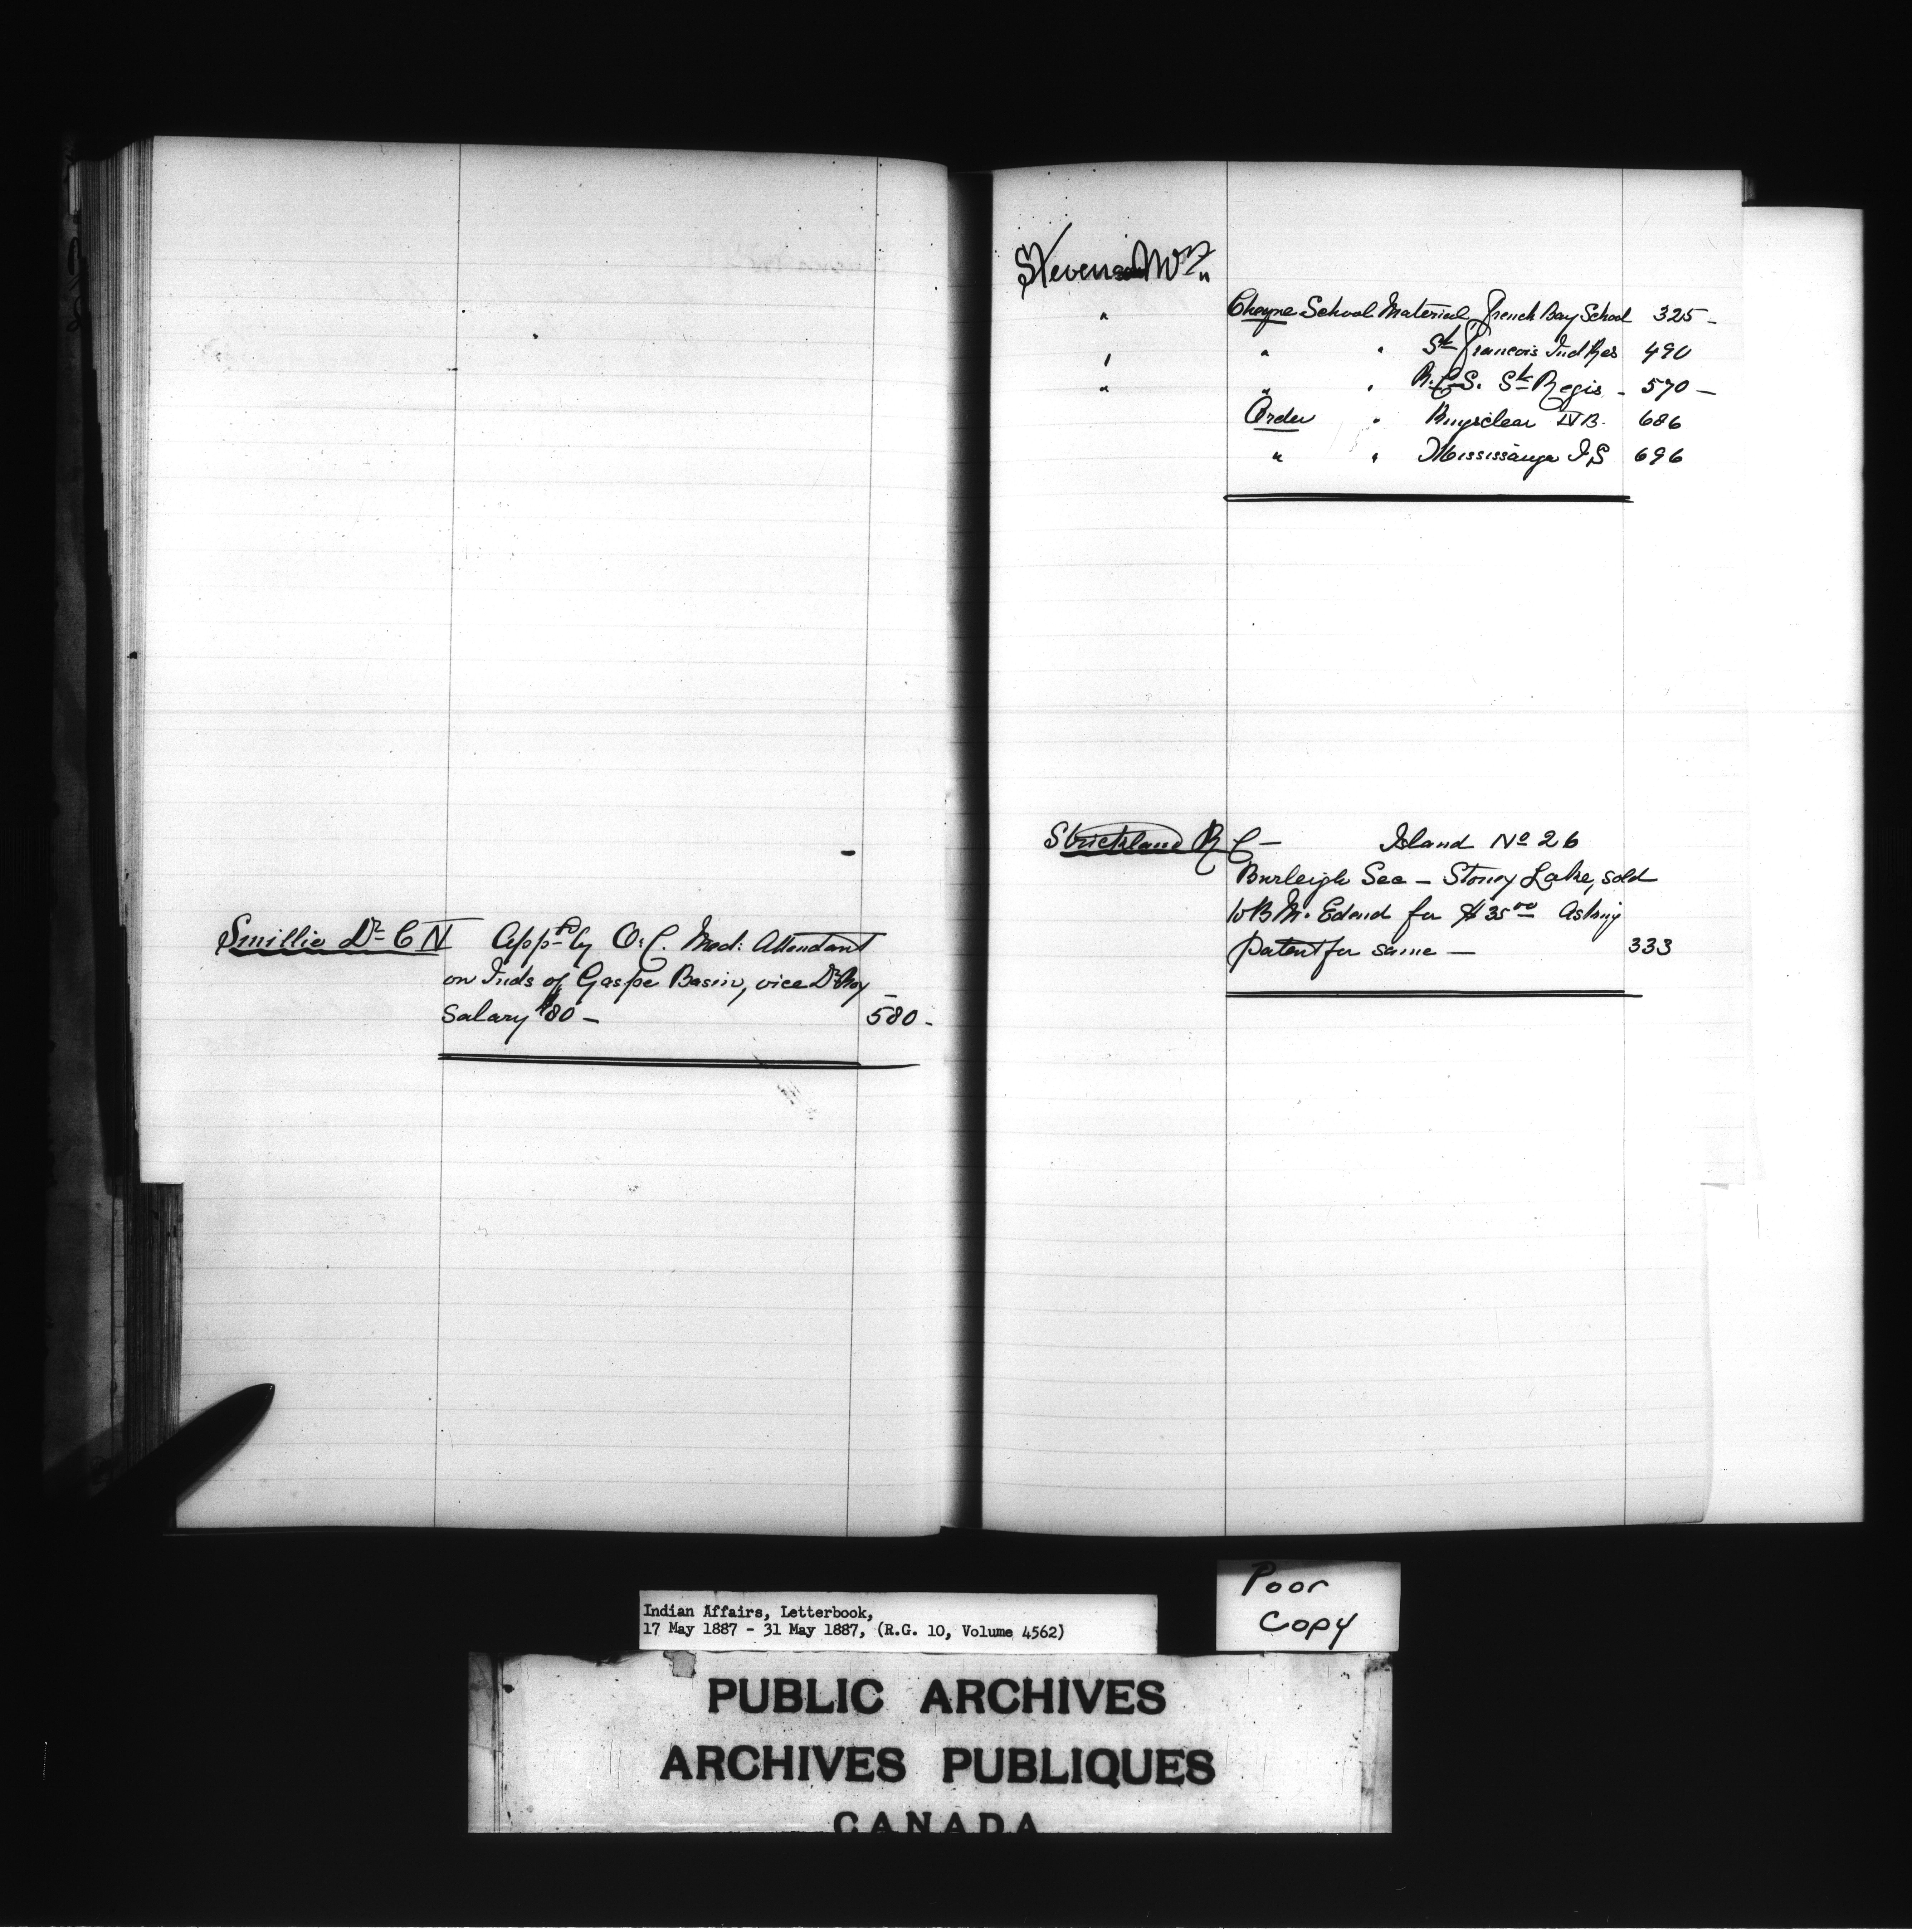 Smillie Dr C N Appd by O. C. Med: Attendant
on Inds of Gaspe Basin, vice Dr Roy
Salary $80 — 580 -
Stevens Wm
" Cheque School Material French Bay School 325 -
" " " St Francois Ind Res 490
" " " R.C.S. St Regis - 570 —
Order " Kingsclear N B. 686
" " Mississauga I S 696
Strickland R C — Island No 26
Burleigh Sec — Stoney Lake, sold
to B Mc for $35 00 Asking
patent for same — 333
Indian Affairs, Letterbook,
17 May 1887 - 31 May 1887, (R.G. 10, Volume 4562)
Poor
Copy
PUBLIC ARCHIVES
ARCHIVES PUBLIQUES
CANADA